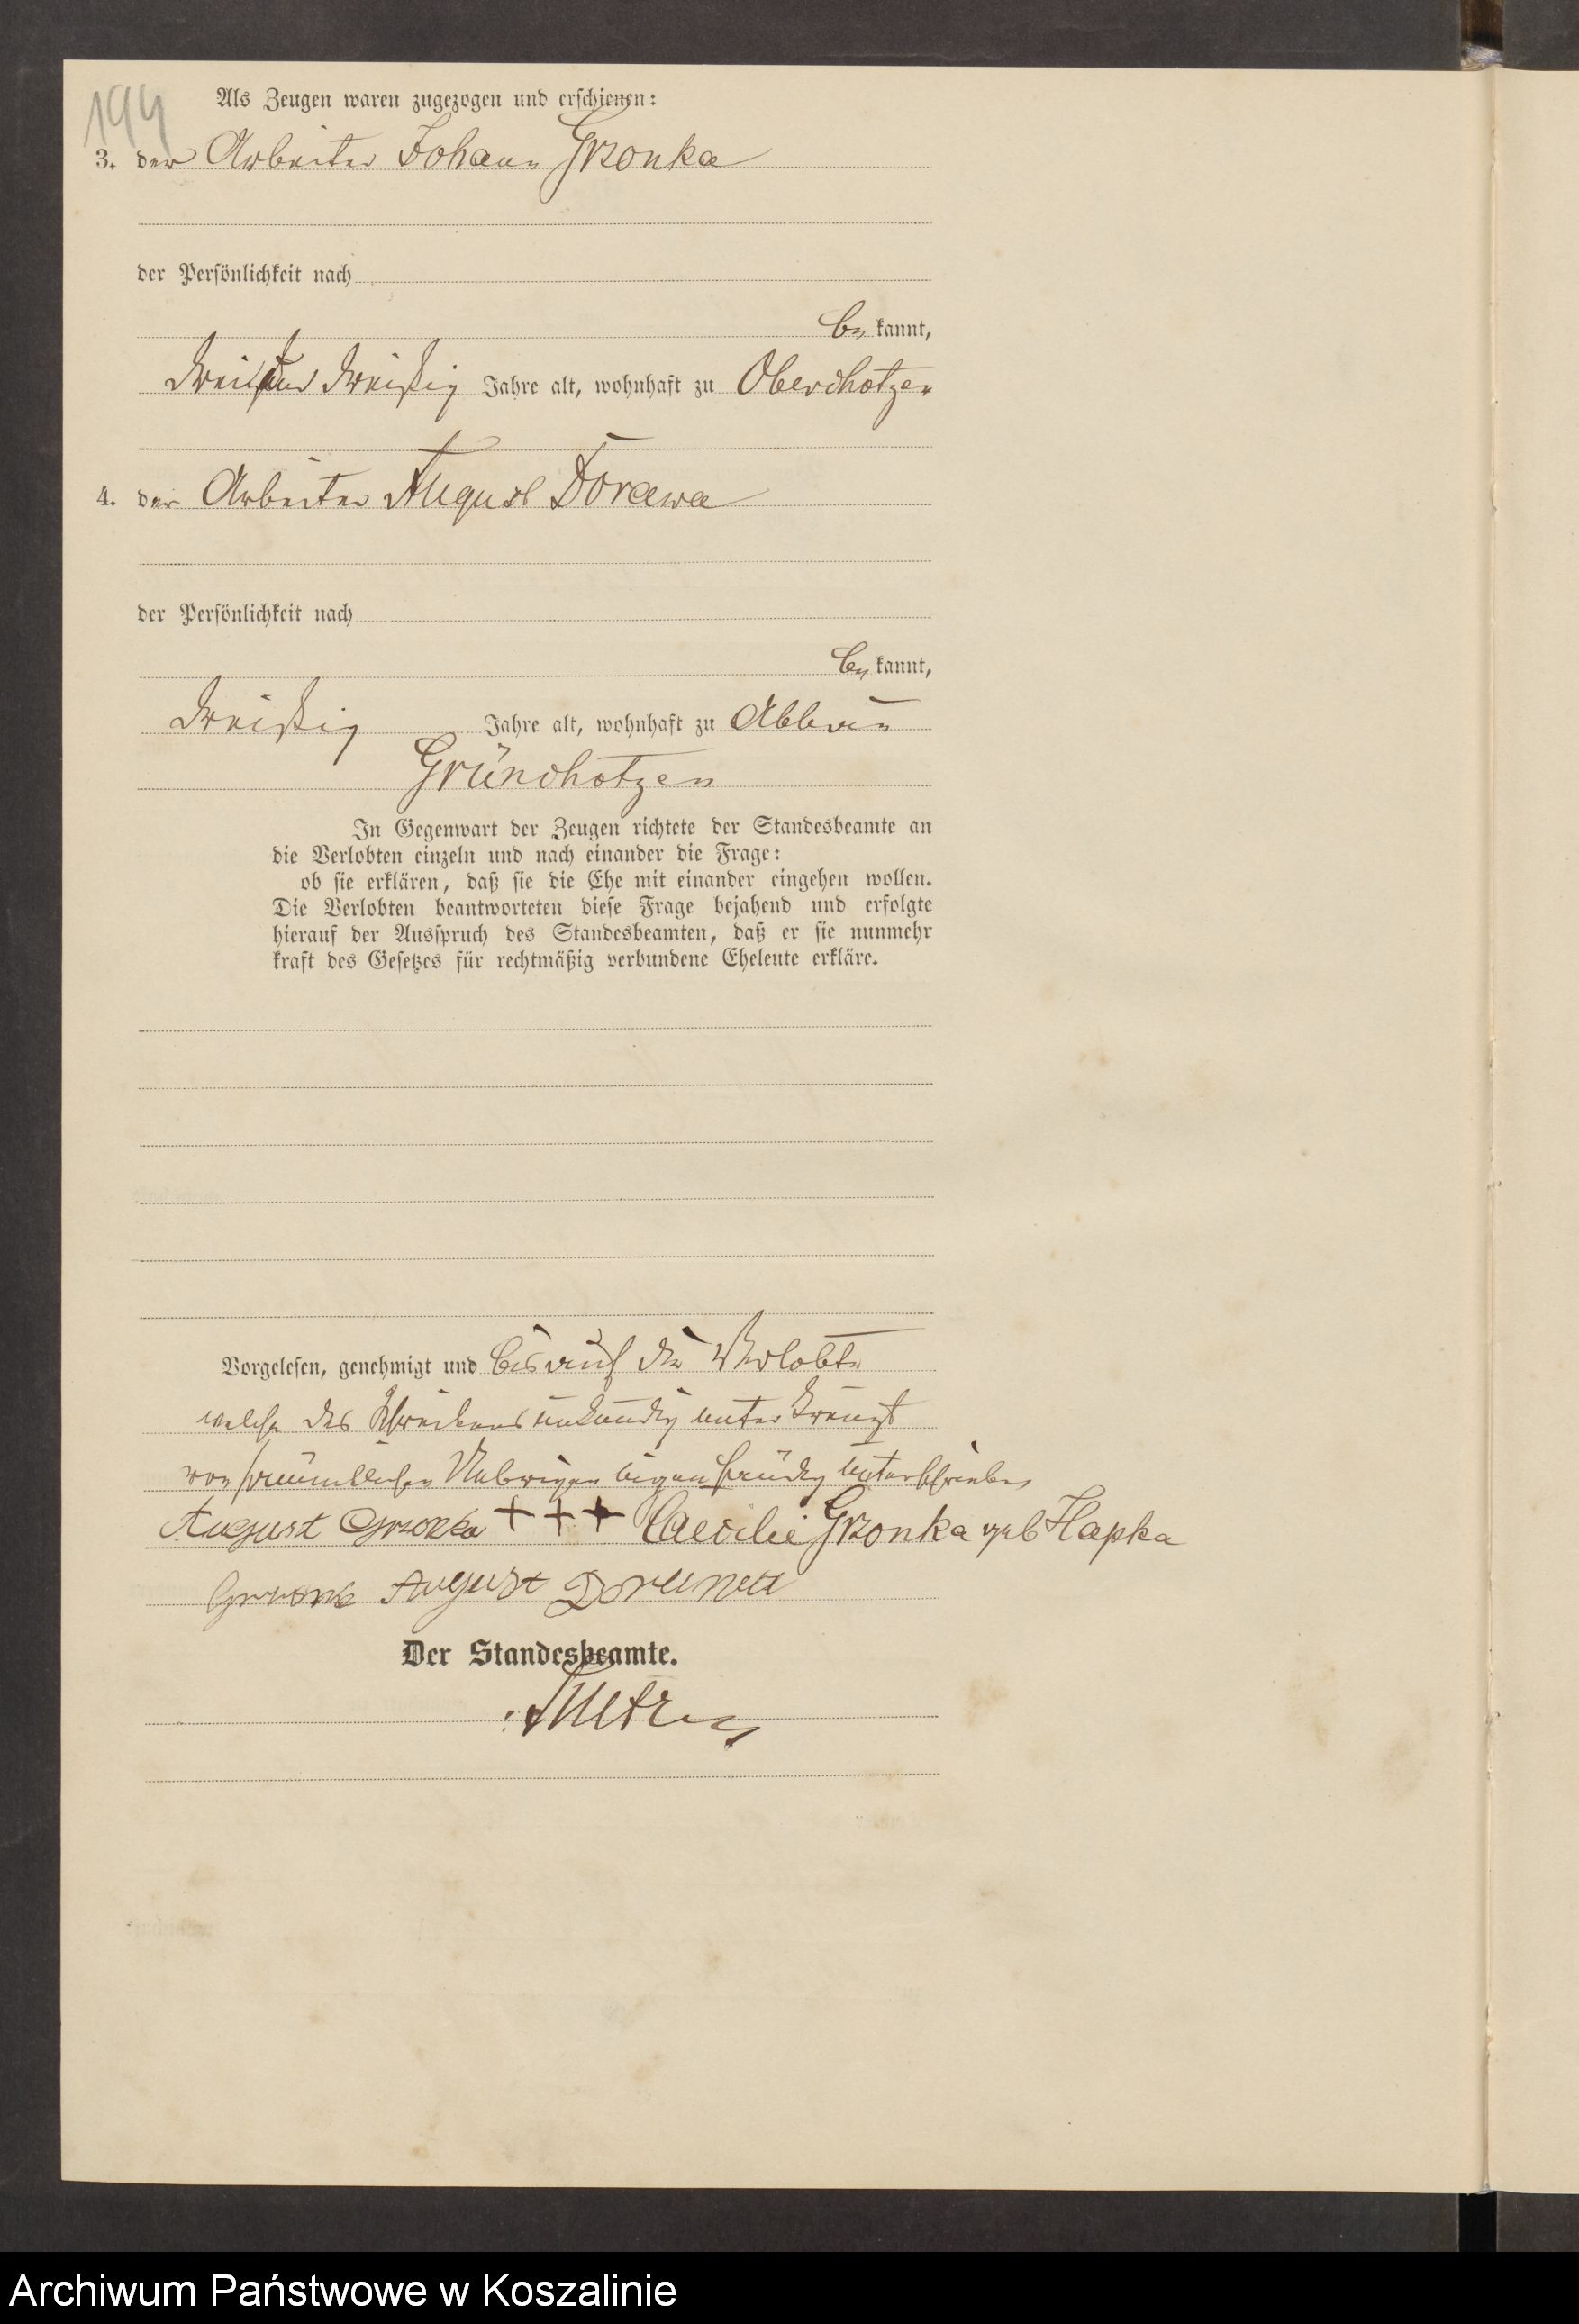 194
Als Zeugen waren zugezogen und erschienen:
3. der Arbeiter Johann Grzonka
der Persönlichkeit nach
be kannt,
dreiund dreißig Jahre alt, wohnhaft zu Oberchotzen
4. der Arbeiter August Dorawa
der Persönlichkeit nach
be kannt,
dreißig Jahre alt, wohnhaft zu Abbau
Gründhotzen
In Gegenwart der Zeugen richtete der Standesbeamte an
die Verlobten einzeln und nach einander die Frage:
ob sie erklären, daß sie die Ehe mit einander eingehen wollen.
Die Verlobten beantworteten diese Frage bejahend und erfolgte
hierauf der Ausspruch des Standesbeamten, daß er sie nunmehr
kraft des Gesetzes für rechtmäßig verbundene Eheleute erkläre.
Vorgelesen, genehmigt und bis auf die Verlobte
welche des Schreibens unkundig unterkreuzt
von sämmtlichen Uebrigen eigenhändig unterschrieben
August Grzonka + + + Caecilie Grzonka geb Hapka
August Dorawa
Der Standesbeamte.
Archiwum Państwowe w Koszalinie